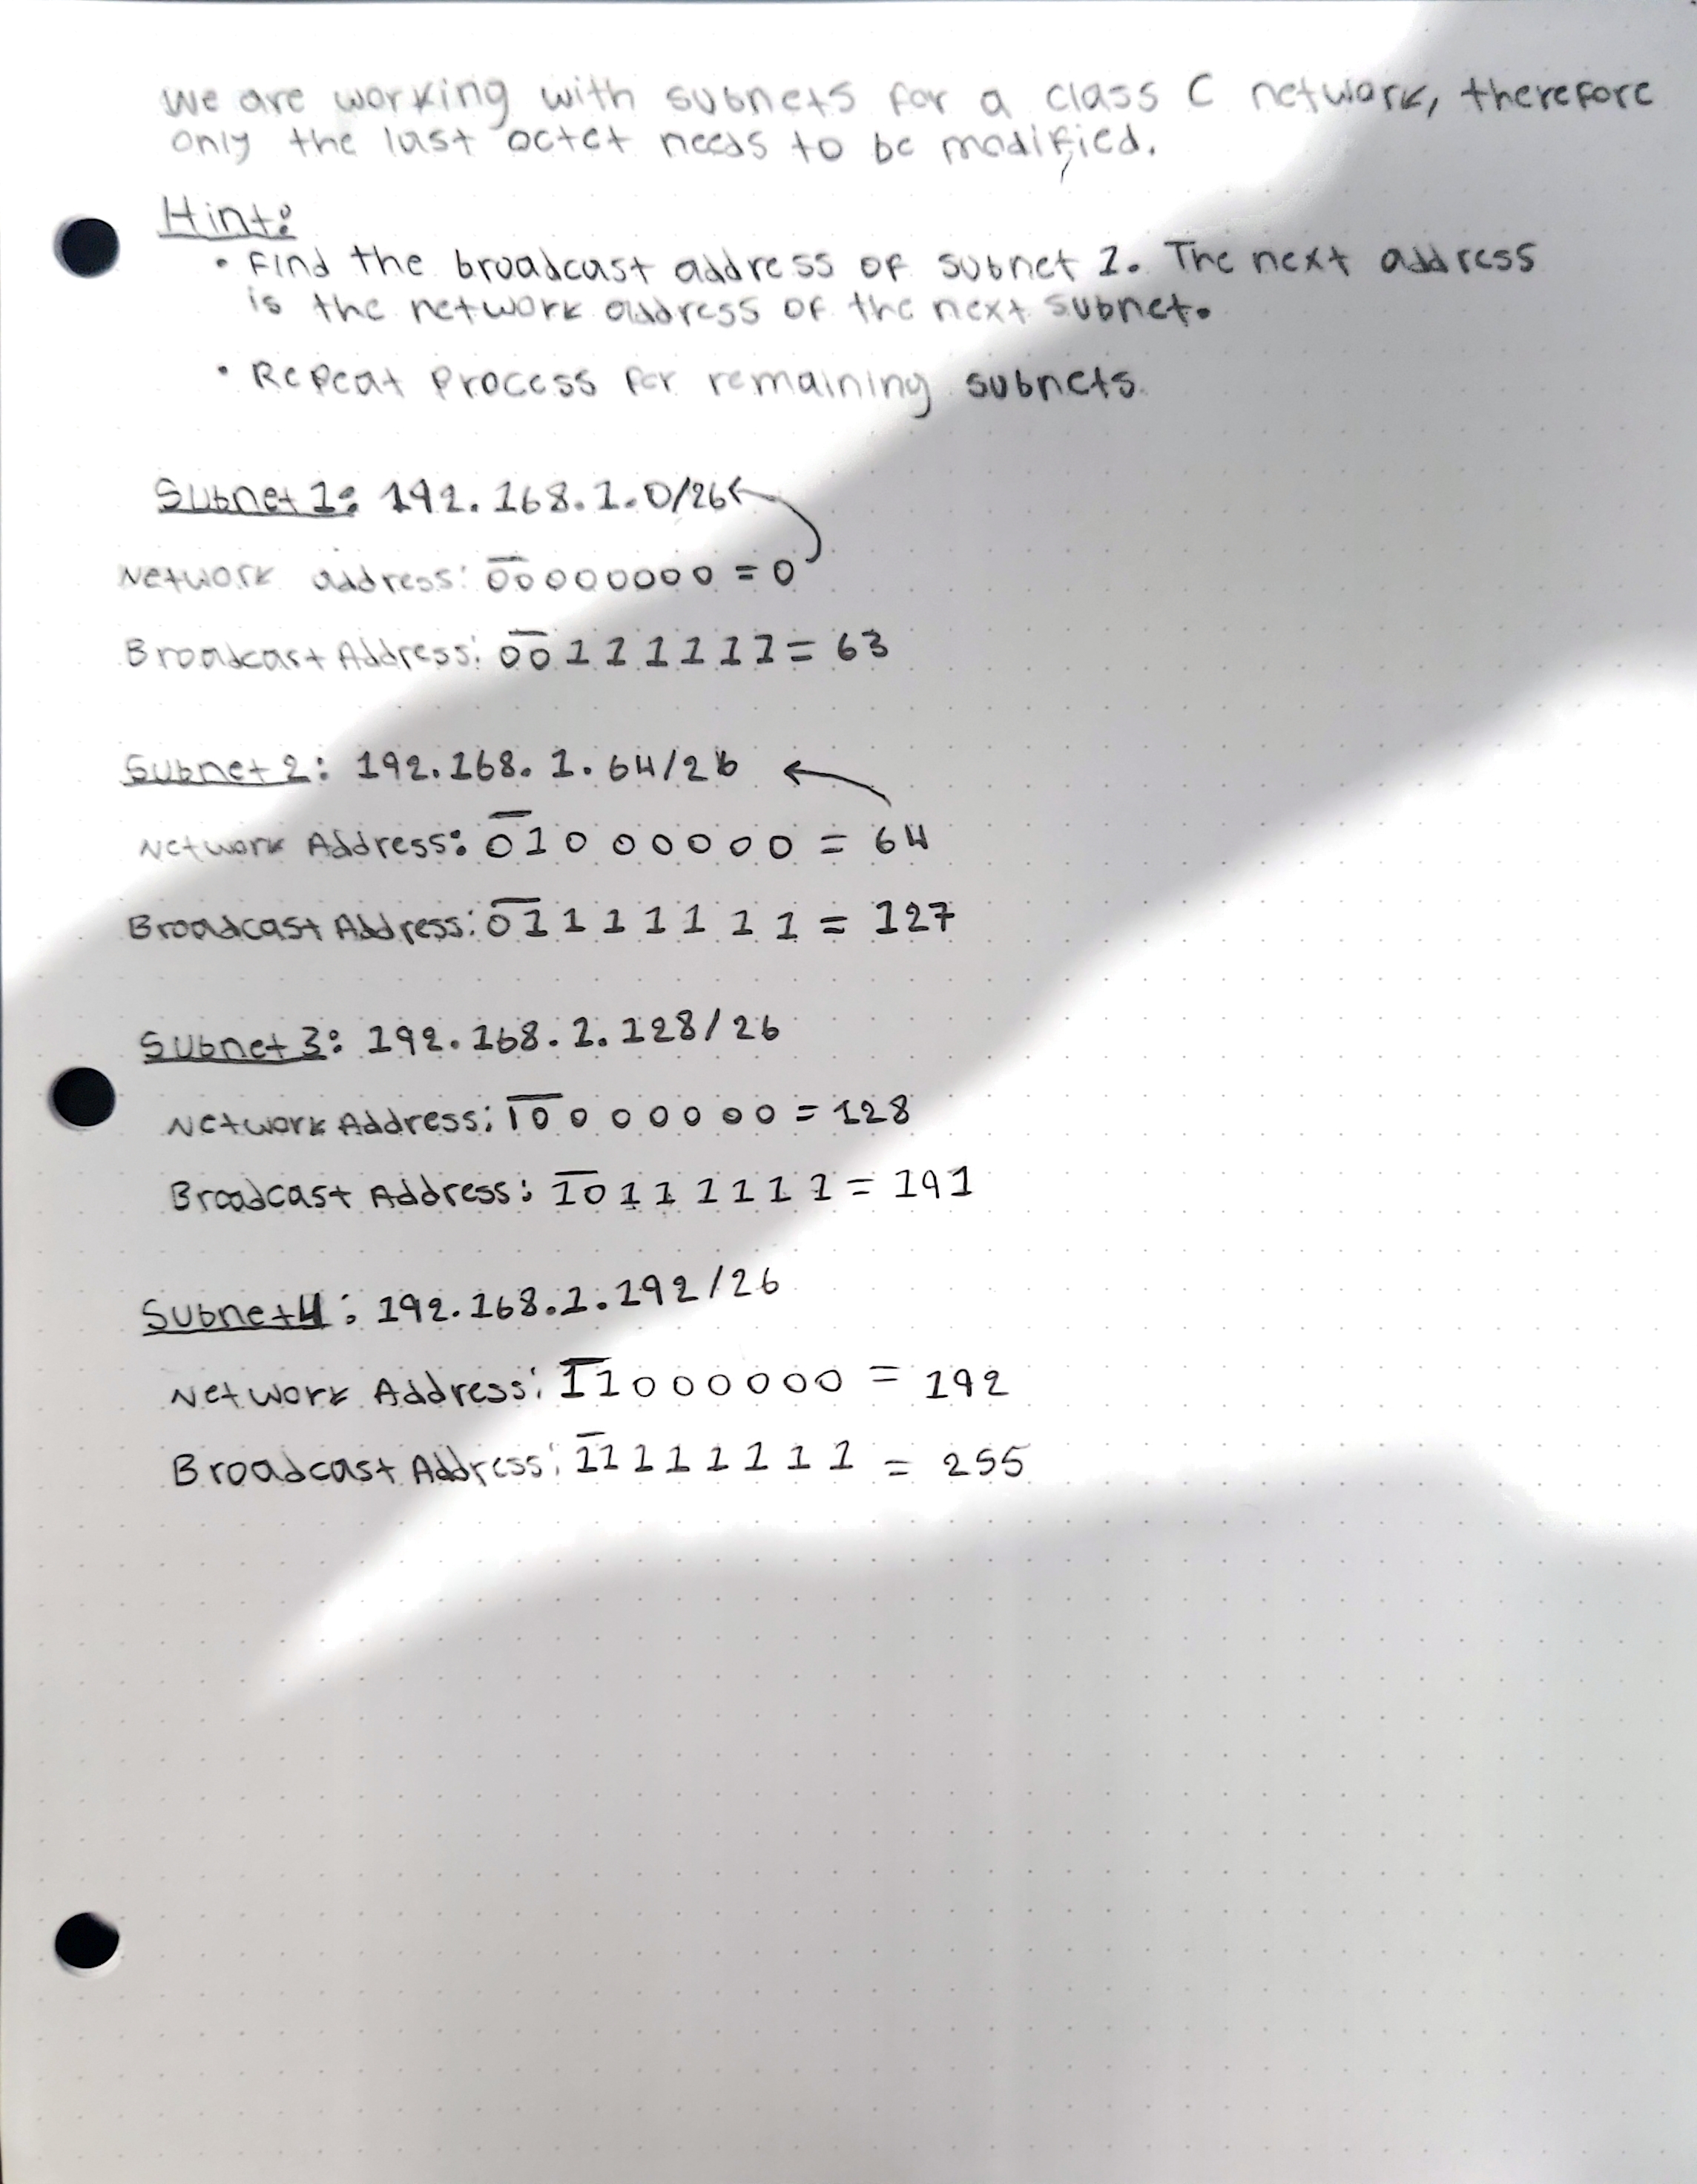 We are working with subnets for a class C network, therefore
only the last octet needs to be modified.
Hint:
• Find the broadcast address of subnet 1. The next address
is the network address of the next subnet.
• Repeat Process for remaining subnets.
Subnet 1: 192.168.1.0/26
Network address: 00000000 = 0
Broadcast Address: 00111111 = 63
Subnet 2: 192.168.1.64/26
Network Address: 01000000 = 64
Broadcast Address: 01111111 = 127
Subnet 3: 192.168.1.128/26
Network Address: 10000000 = 128
Broadcast Address: 10111111 = 191
Subnet 4: 192.168.1.192/26
Network Address: 11000000 = 192
Broadcast Address: 11111111 = 255